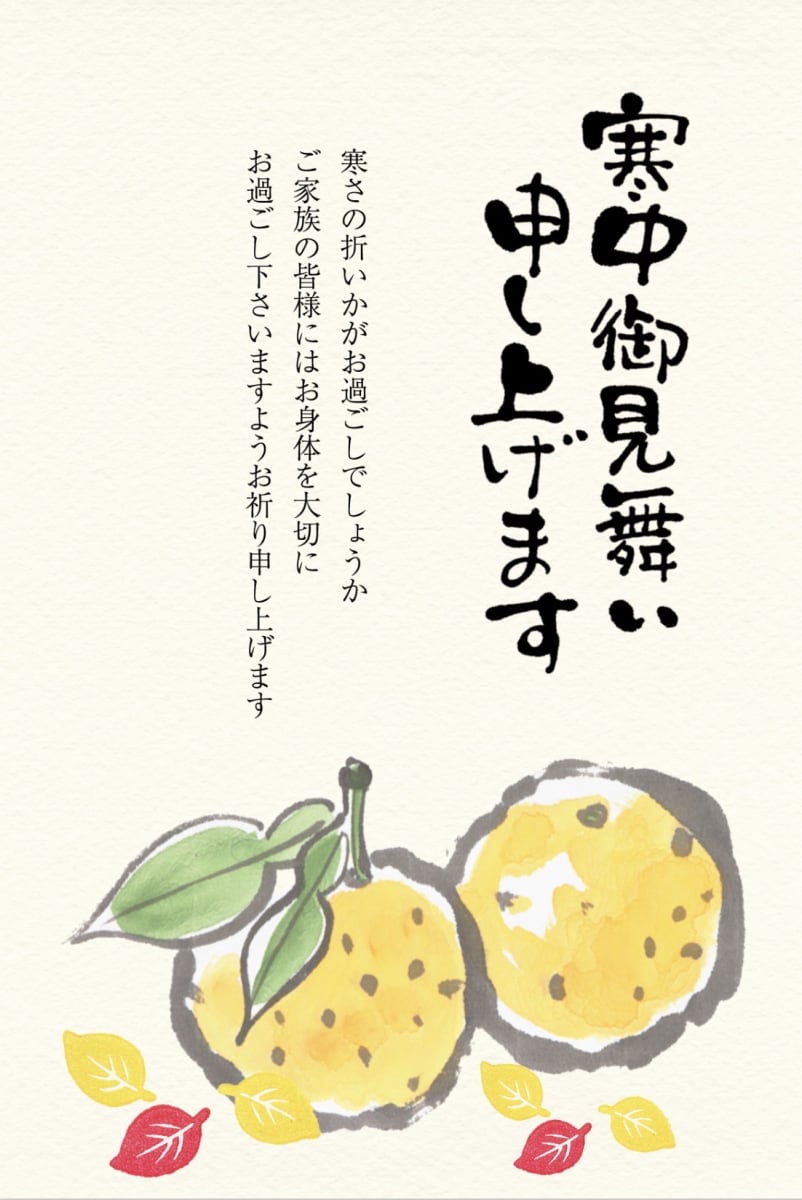 寒中御見舞い
申し上げます
寒さの折いかがお過ごしでしょうか
ご家族の皆様にはお身体を大切に
お過ごし下さいますようお祈り申し上げます